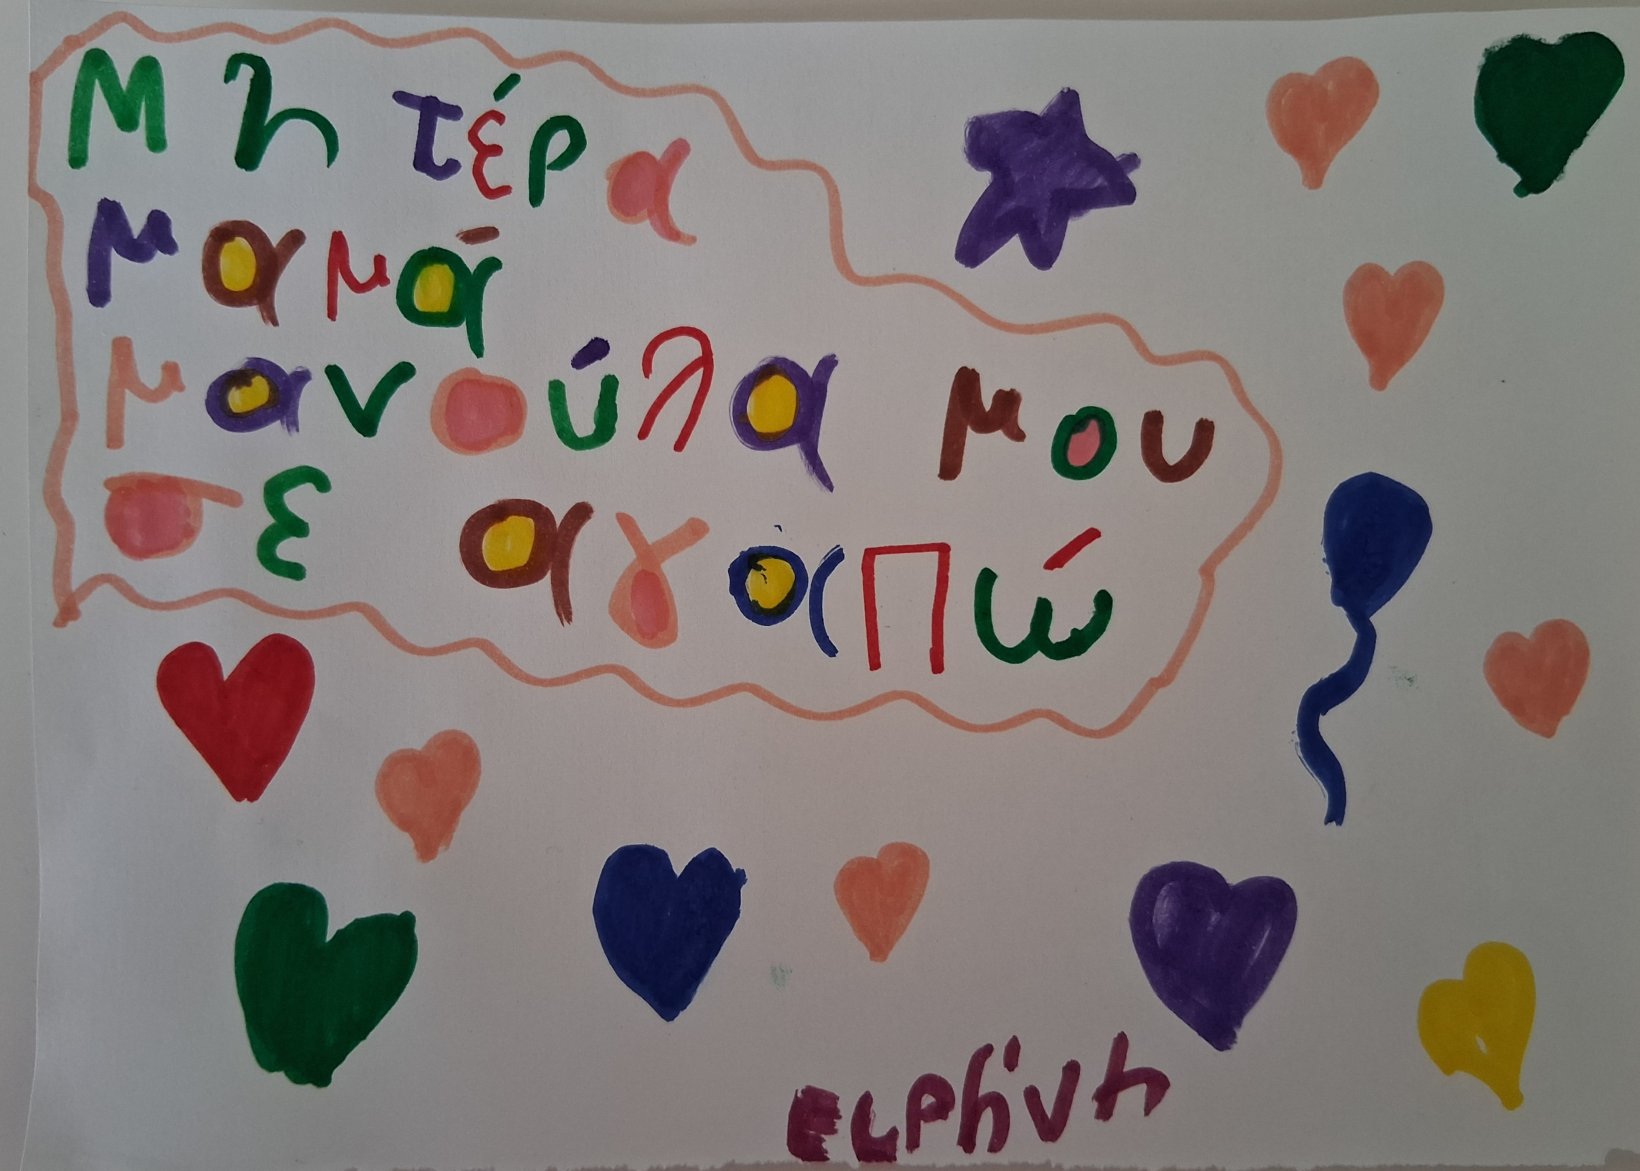 Μητέρα
μαμά
μανούλα μου
σε αγαπώ
Ειρήνη